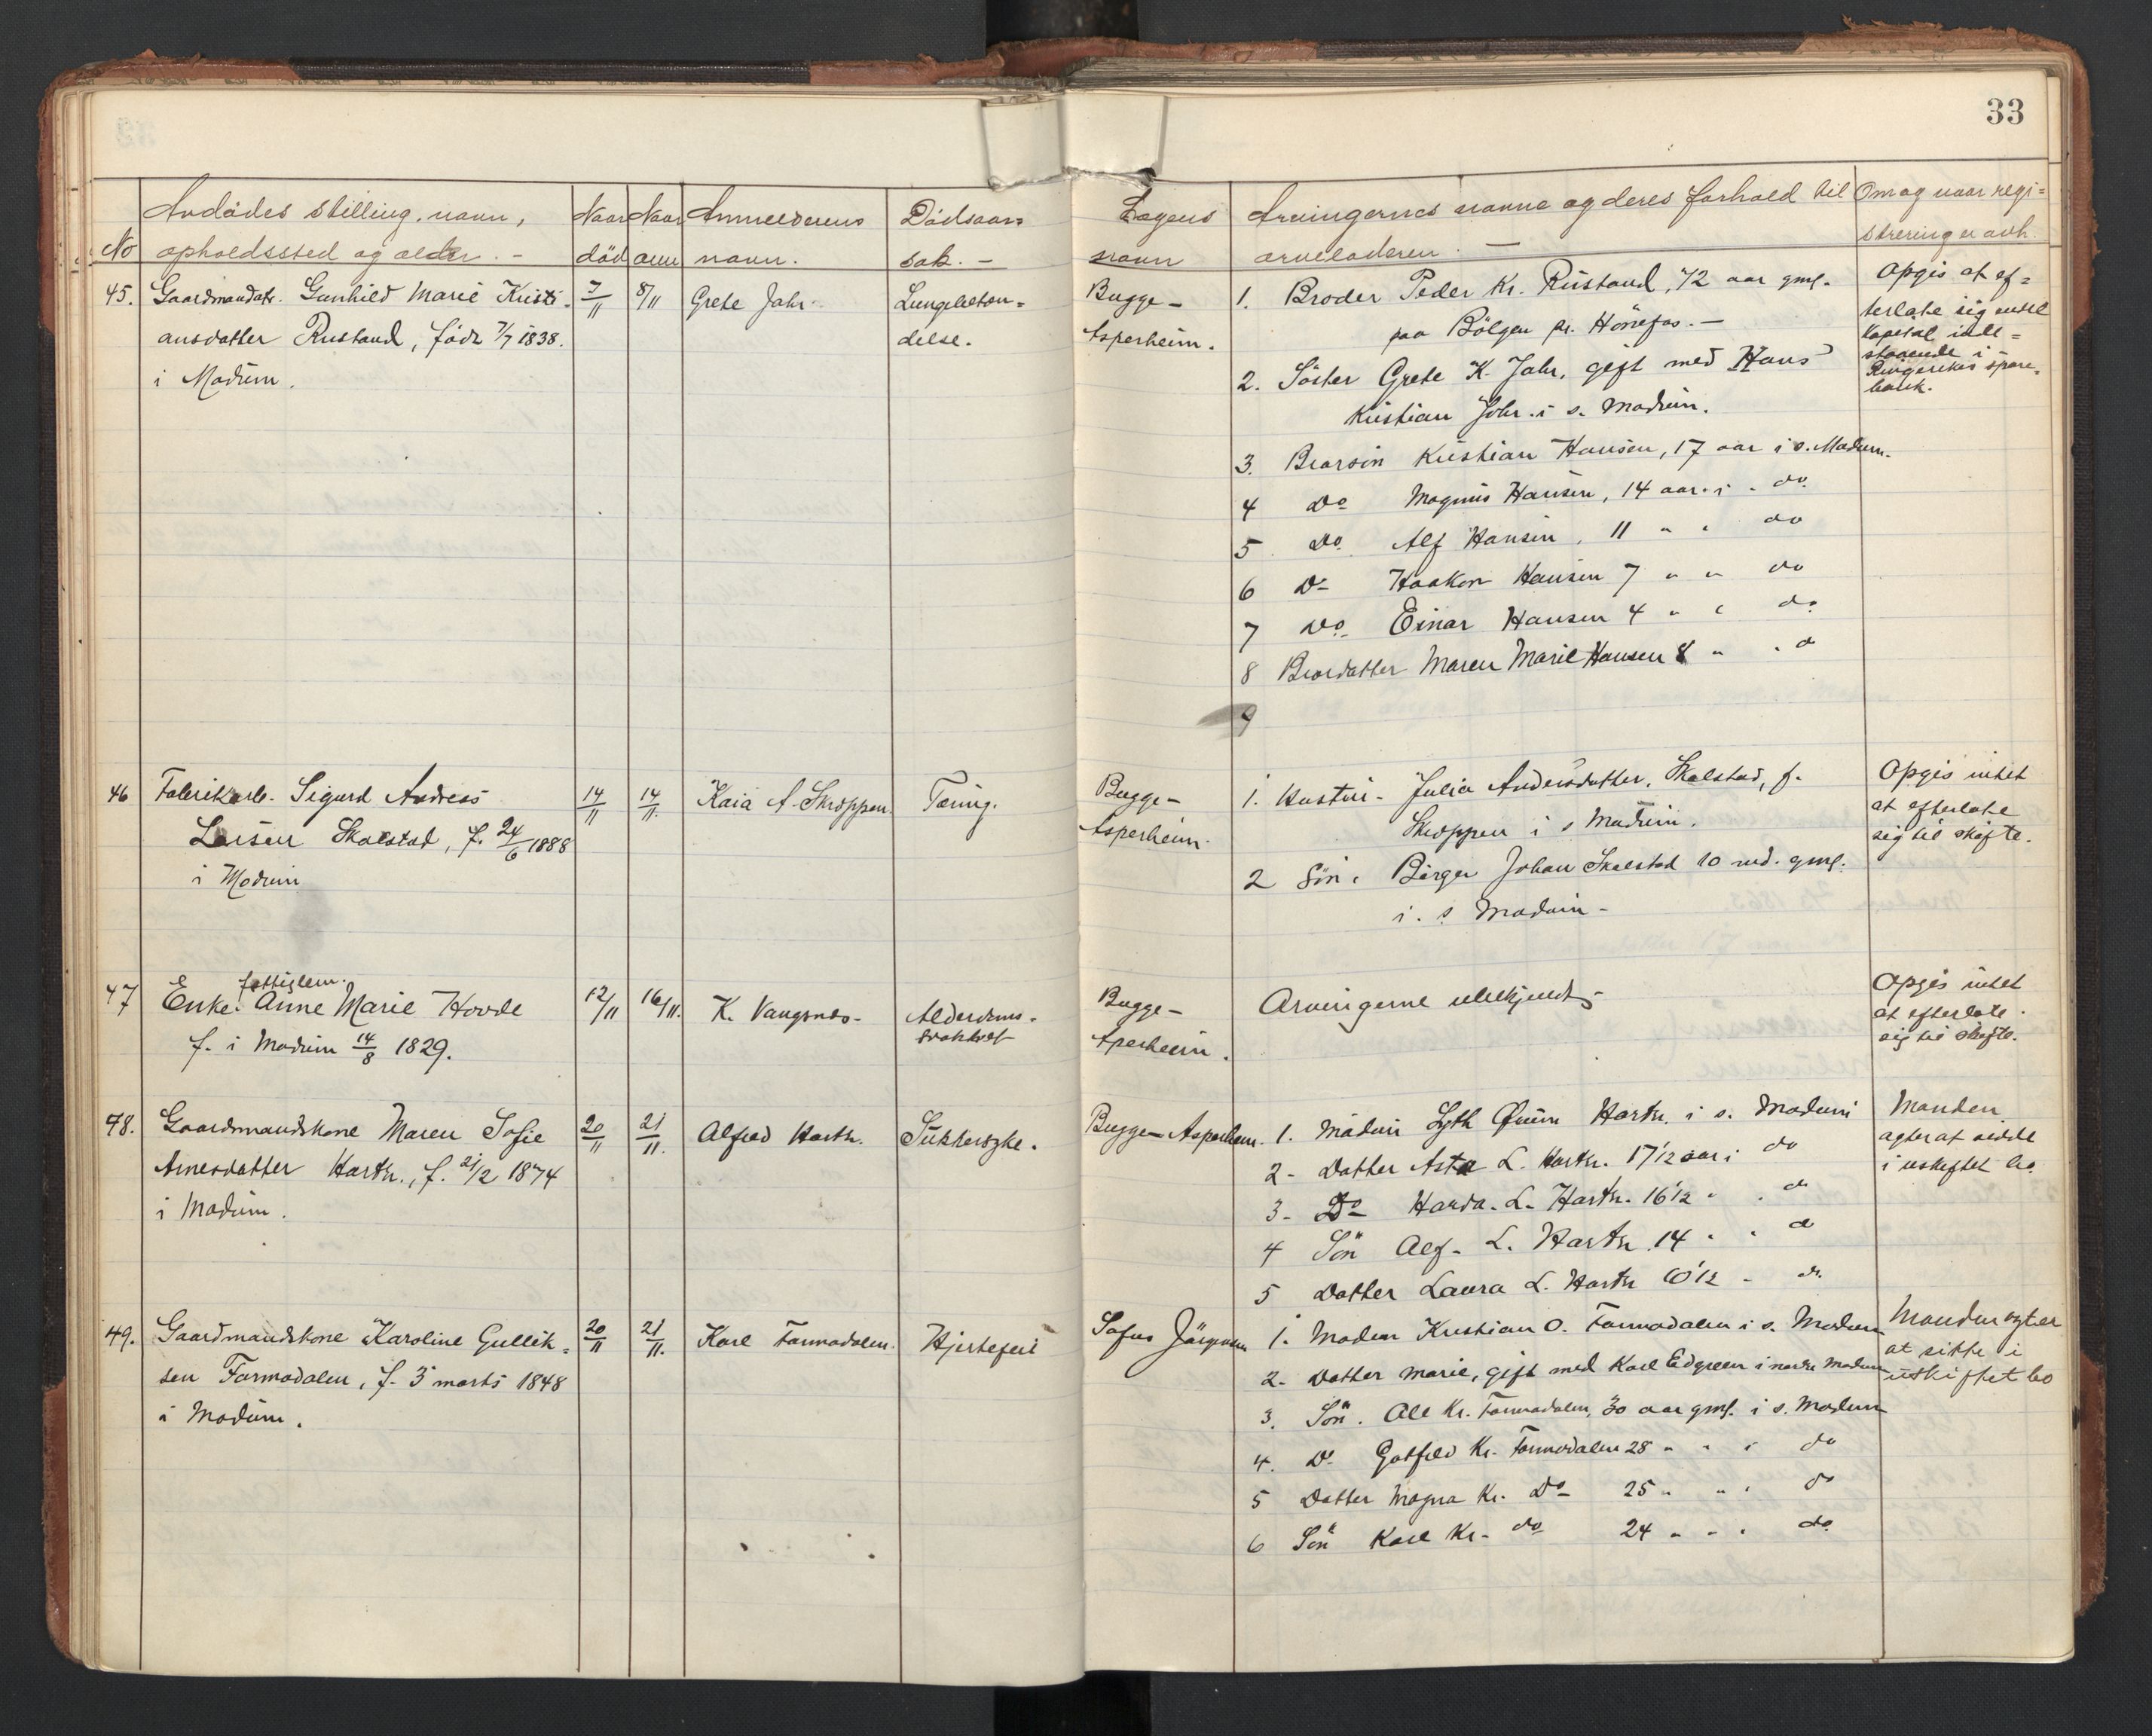 33
No
Avdödes stilling, navn,
opholdssted og alder. -
Naar
död
Naar
anm
Anmelderens
navn.
Dödsaar-
sak. -
Lægens
navn
Arvingernes navne og deres forhold til
arveladeren. -
Om og naar regi-
strering er avh.
45. Gaardmandsdatr. Gunhild Marie Kristi-
ansdatter Rustand, födt 7/7 1838.
i Modum.
7/11
8/11
Grete Jahr
Lungebeten-
delse.
Bugge-
Asperheim.
1. Broder Peder Kr. Rustand, 72 aar gml.
paa Bölgen pr. Hönefos. -
2. Söster Grete K. Jahr, gift med Hans
Kristian Jahr. i s. Modum.
3. Brorsön Kristian Hansen, 17 aar i s. Modum.
4 Do Magnus Hansen, 14 aar. i - do
5 Do. Alf Hansen, 11 " " do
6 Do Haakon Hansen 7 " " do
7 Do. Einar Hansen 4 " " do
8 Brordatter Maren Marie Hansen 8 " " do
9
Opgis at ef-
terlate sig endel
kapital inde-
staaende i
Ringerikes spare-
bank.
46 Fabrikarb. Sigurd Andreas
Larsen Skalstad, f. 24/6 1888
i Modum
14/11
14/11.
Kaia A. Skroppen
Tæring.
Bugge-
Asperheim.
1. Hustru - Julia Andersdatter Skalstad, f.
Skroppen i s Modum.
2 Sön. Birger Johan Skalstad 10 md. gml.
i. s Modum -
Opgis intet
at efterlate
sig til skifte.
47 Enke. fattiglem. Anne Marie Hovde
f. i Modum 14/8 1829.
12/11
16/11.
K. Vangsnes -
Alderdoms-
svakhet
Bugge-
Aperheim.
Arvingerne ubekjendt -
Opgis intet
at efterlate
sig til skifte.
48. Gaardmandskone Maren Sofie
Arnesdatter Hartz., f. 21/2 1874
i Modum.
20/11
21/11.
Alfred Hartz.
Sukkersyke.
Bugge-Asperheim.
2- Datter Asta L. Hartz. 17 1/2 aar i do
3- Do L. Hartz. 16 1/2 " . do
4 Sön Alf. L. Hartz 14 " " do
5 Datter Laura L. Hartz 10 1/2 " do.
Manden
agter at sidde
i uskiftet bo.
49. Gaardmandskone Karoline Gullik-
sen Formodalen, f. 3 marts 1848
i Modum.
20/11
21/11.
Karl Formodalen.
Hjertefeil
Sofus Jörgensen
1. Maden Kristian O. Formodalen i s. Modum
2. Datter Marie, gift med Karl Edgreen i nordre Modum
3. Sön. Ole Kr. Formodalen, 30 aar gml. i s. Modum
4. Do Gotfred Kr. Formodalen 28 " " i do
5 Datter Magna Kr. Do 25 " " " do
6 Sön Karl Kr. do 24 " " " do.
Manden agter
at sitte i
uskiftet bo